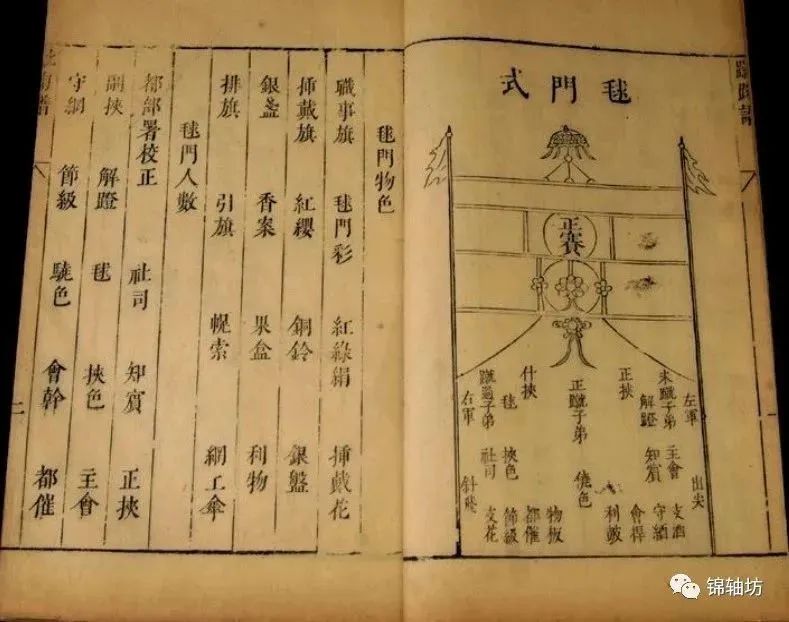 毬門式
正賽
左軍 出尖
未蹴子弟 主會 支酒
解蹬 知賓 守網
正挾 會桿
利皷
正蹴子弟 僥色
什挾 物板
毬 挾色 都催
蹴過子弟 社司 節級
支花
右軍 針飛
一
毬門物色
職事旗 毬門彩 紅綠絹 揷戴花
揷戴旗 紅纓 銅鈴 銀盤
銀盞 香案 果盒 利物
排旗 引旗 幌索 網工傘
毬門人數
都部署校正 社司 知賓 正挾
副挾 解蹬 毬 挾色 主會
守網 節級 驍色 會幹 都催
二
锦轴坊